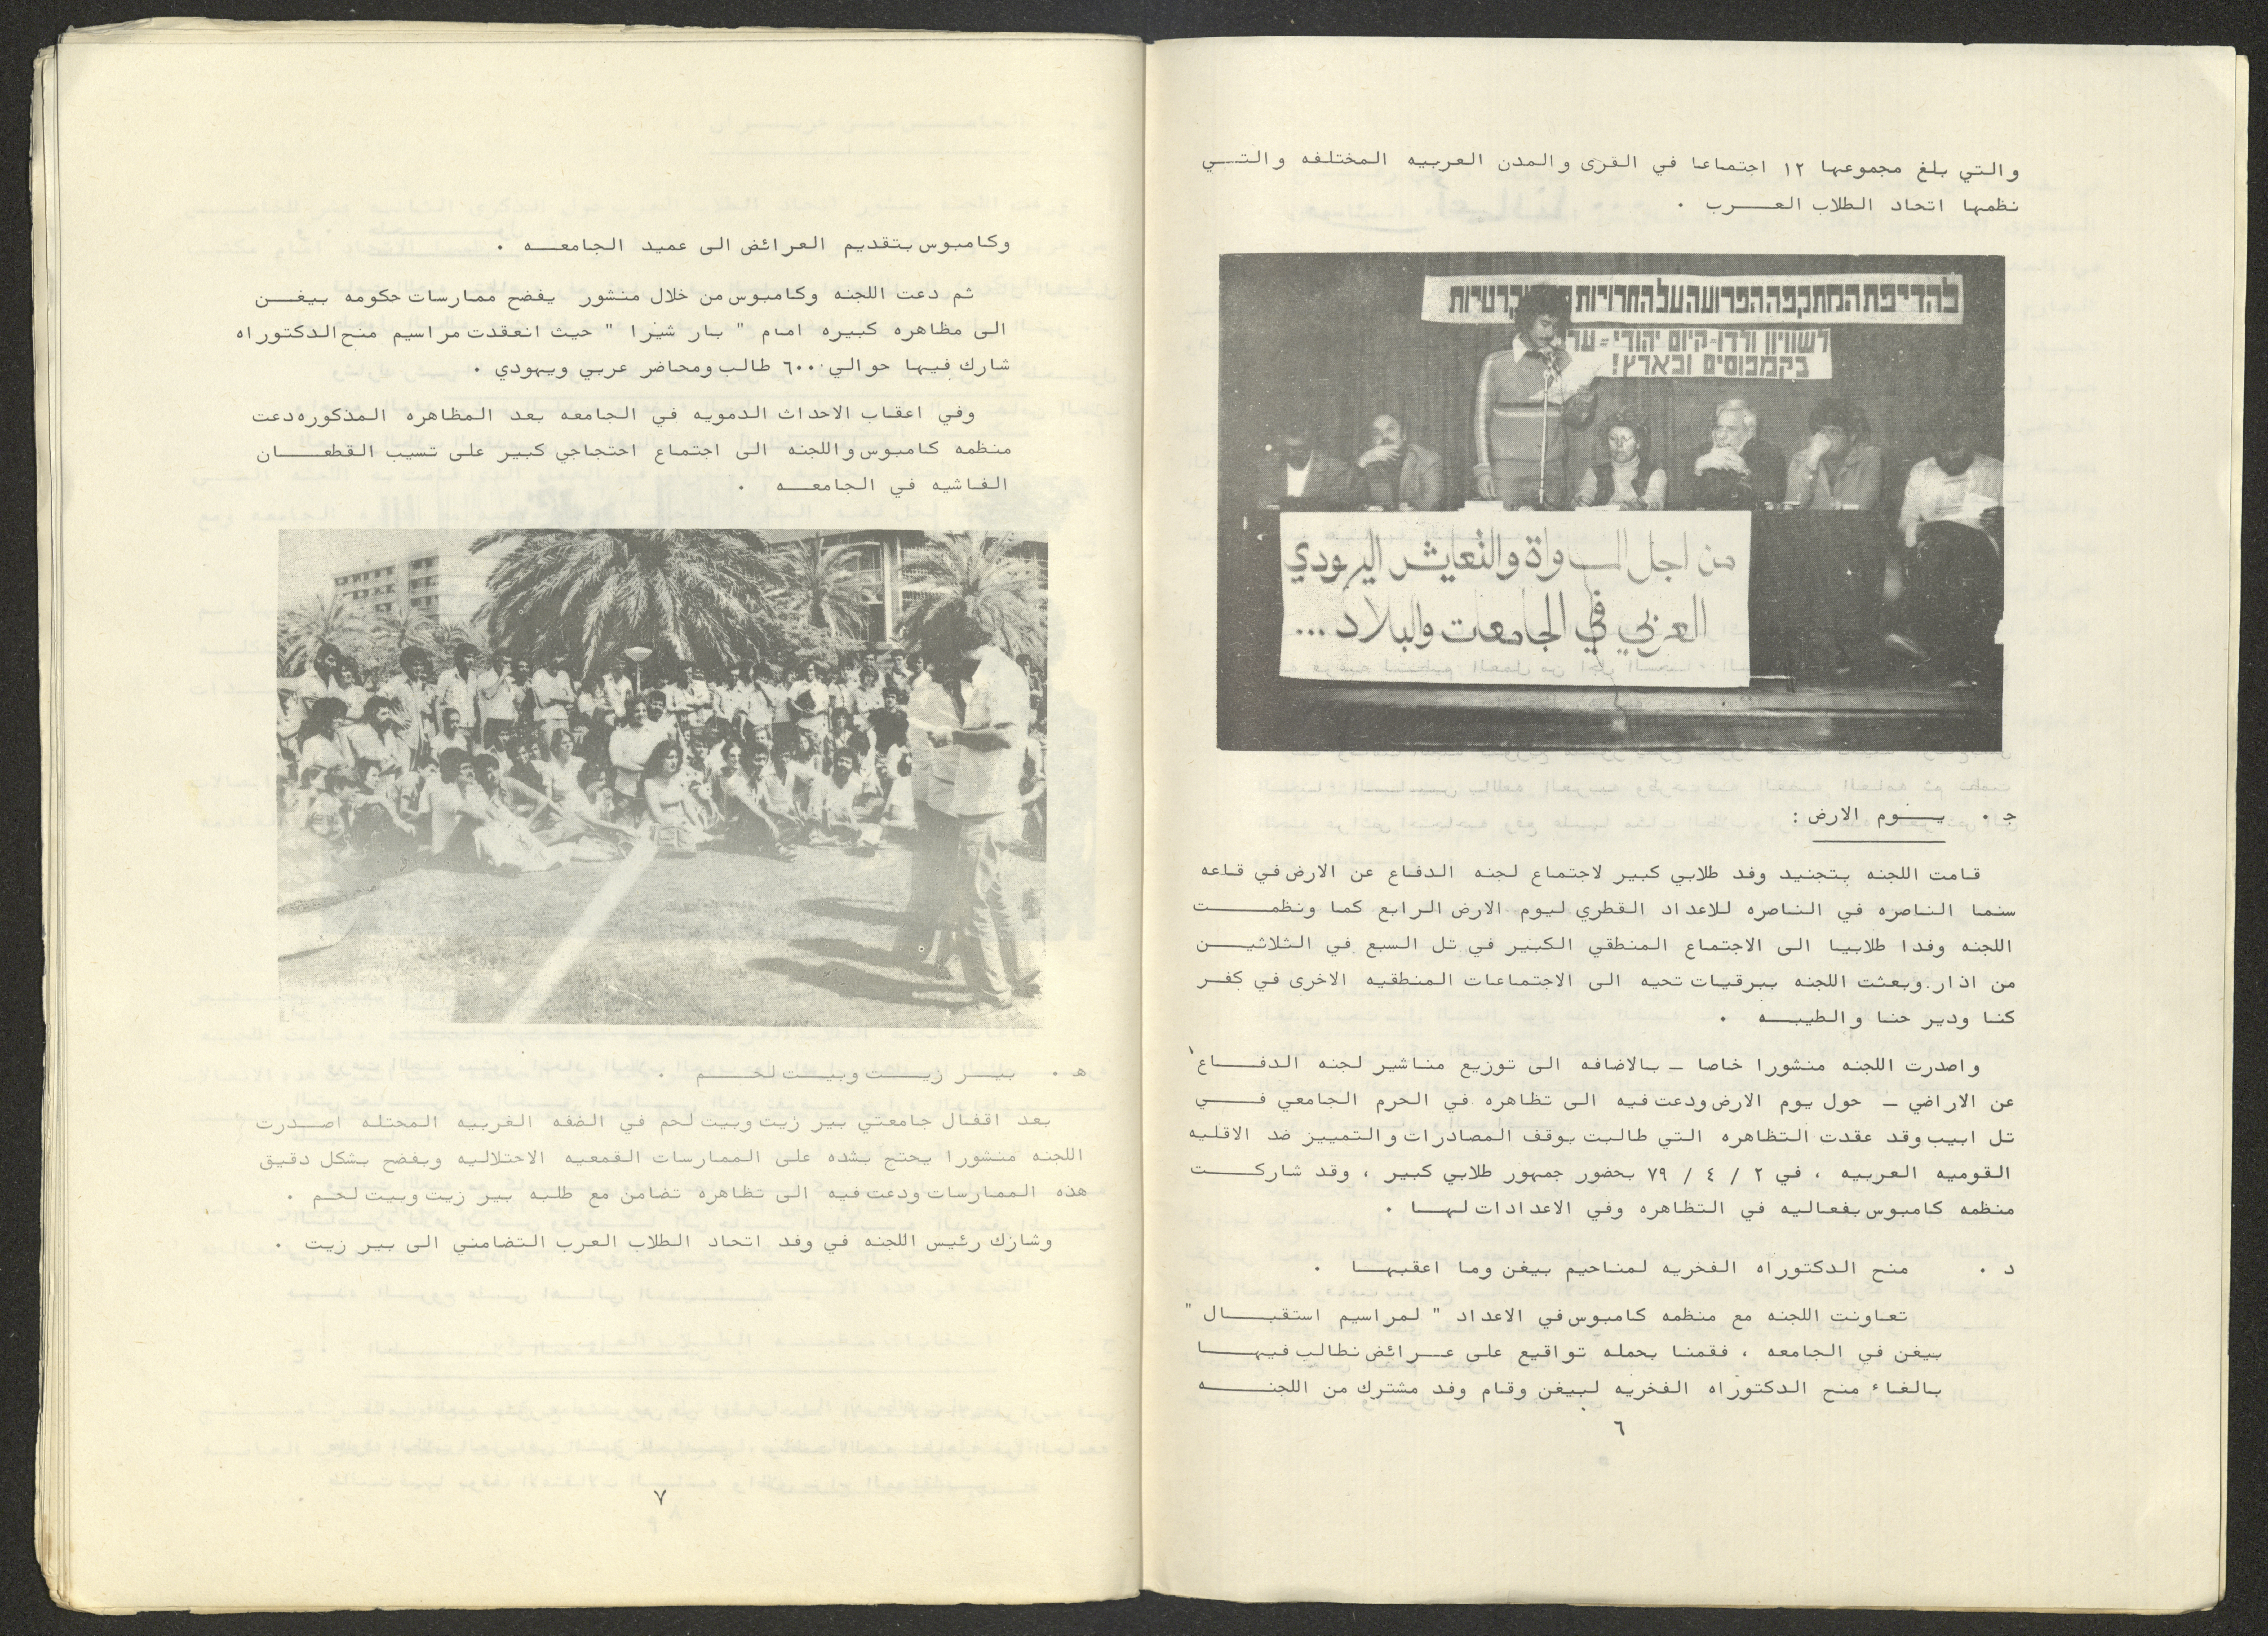 والتي بلغ مجموعها ١٢ اجتماعا في القرى والمدن العربيه المختلفه والتي
نظمها اتحاد الطلاب العرب .
להדיפת המתקפה הפרועה על החרויות
לשוויון ולדו-קיום יהודי-ער
בקמפוסים ובארץ!
من اجل المساواة والتعايش اليهودي
العربي في الجامعات والبلاد ...
ج . يوم الارض :
قامت اللجنه بتجنيد وفد طلابي كبير لاجتماع لجنه الدفاع عن الارض في قاعه
سنما الناصره في الناصره للاعداد القطري ليوم الارض الرابع كما ونظمت
اللجنه وفدا طلابيا الى الاجتماع المنطقي الكبير في تل السبع في الثلاثين
من اذار . وبعثت اللجنه ببرقيات تحيه الى الاجتماعات المنطقيه الاخرى في كفر
كنا ودير حنا والطيبه .
واصدرت اللجنه منشورا خاصا - بالاضافه الى توزيع مناشير لجنه الدفاع
عن الاراضي - حول يوم الارض ودعت فيه الى تظاهره في الحرم الجامعي في
تل ابيب وقد عقدت التظاهره التي طالبت بوقف المصادرات والتمييز ضد الاقليه
القوميه العربيه ، في ٢ / ٤ / ٧٩ بحضور جمهور طلابي كبير ، وقد شاركت
منظمه كامبوس بفعاليه في التظاهره وفي الاعدادات لها .
د . منح الدكتوراه الفخريه لمناحيم بيغن وما اعقبها .
تعاونت اللجنه مع منظمه كامبوس في الاعداد " لمراسيم استقبال "
بيغن في الجامعه ، فقمنا بحمله تواقيع على عرائض نطالب فيها
بالغاء منح الدكتوراه الفخريه لبيغن وقام وفد مشترك من اللجنه
٦
وكامبوس بتقديم العرائض الى عميد الجامعه .
ثم دعت اللجنه وكامبوس من خلال منشور يفضح ممارسات حكومه بيغن
الى مظاهره كبيره امام " بار شيرا " حيث انعقدت مراسيم منح الدكتوراه
شارك فيها حوالي ٦٠٠ طالب ومحاضر عربي ويهودي .
وفي اعقاب الاحداث الدمويه في الجامعه بعد المظاهره المذكوره دعت
منظمه كامبوس واللجنه الى اجتماع احتجاجي كبير على تسيب القطعان
الفاشيه في الجامعه .
ه . بير زيت وبيت لحم .
بعد اقفال جامعتي بير زيت وبيت لحم في الضفه الغربيه المحتله اصدرت
اللجنه منشورا يحتج بشده على الممارسات القمعيه الاحتلاليه ويفضح بشكل دقيق
هذه الممارسات ودعت فيه الى تظاهره تضامن مع طلبه بير زيت وبيت لحم .
وشارك رئيس اللجنه في وفد اتحاد الطلاب العرب التضامني الى بير زيت .
٧